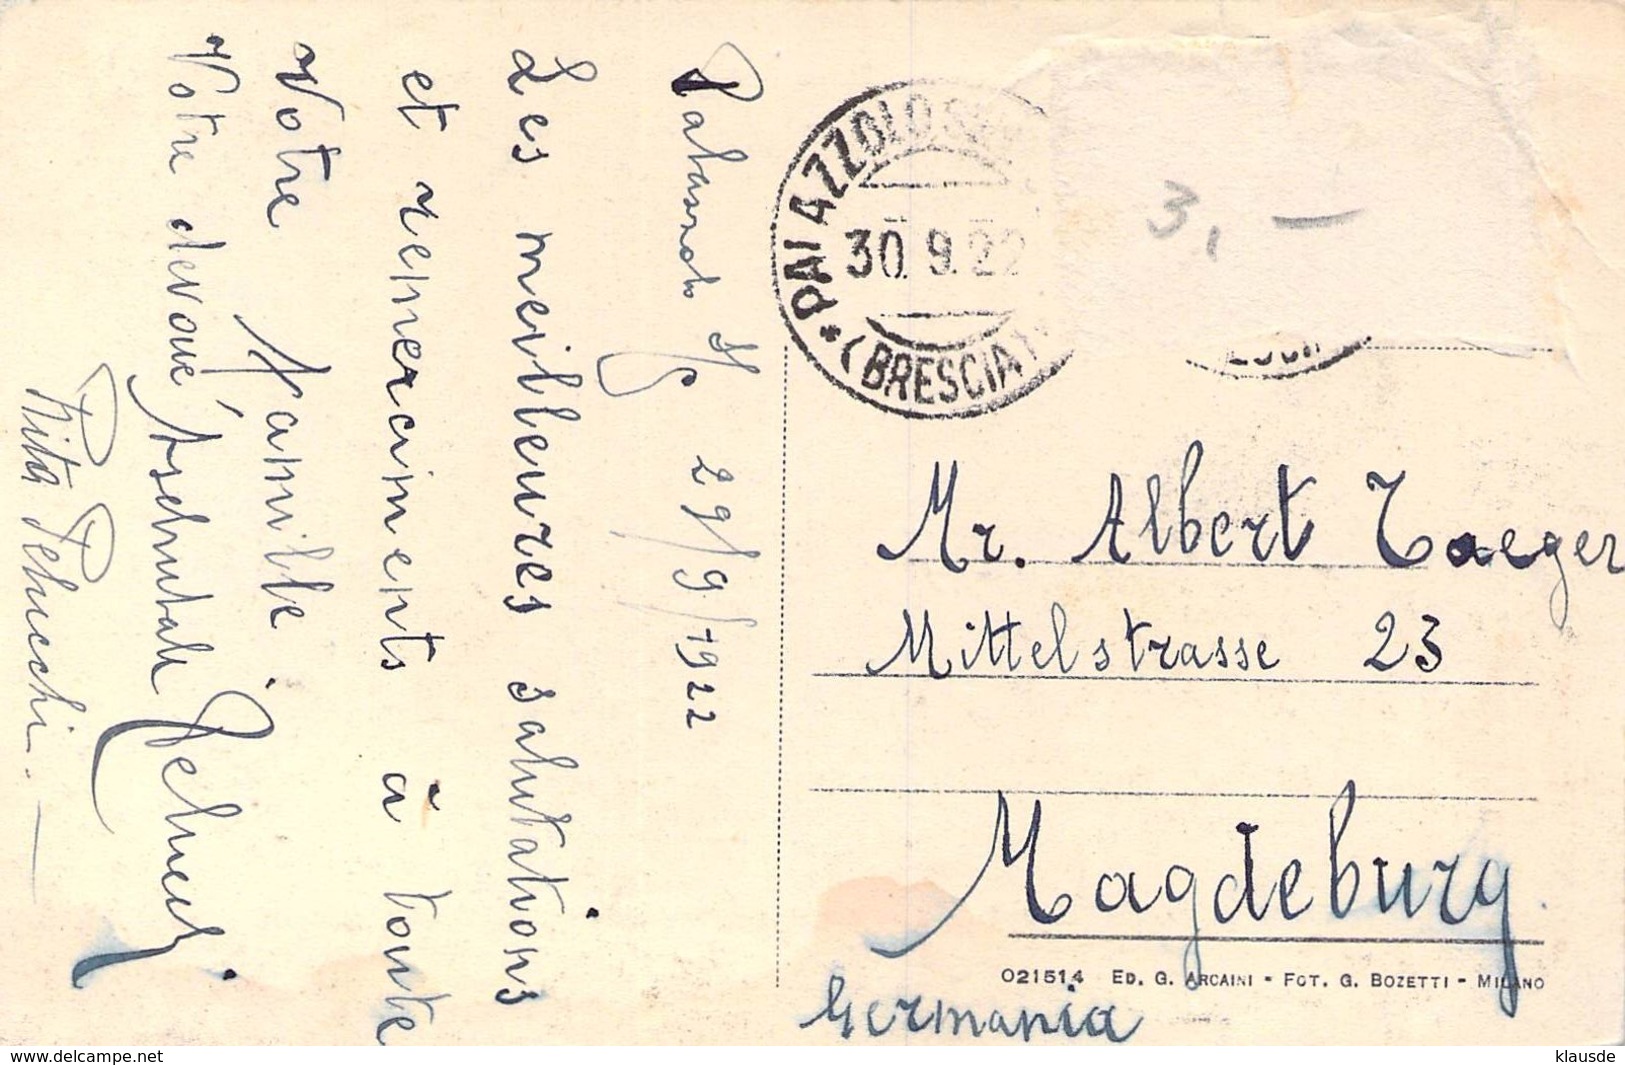 S/O 29/9/1922
Les meilleures salutations
et remerciments à toute
Votre Famille.
Votre dévoué
Rita Pelucchi.
PALAZZOLO
30.9.22
(BRESCIA)
3,—
Mr. Albert Taeger
Mittelstrasse 23
Magdeburg.
Germania
021514 ED. G. ARCAINI - FOT. G. BOZETTI - MILANO
klausde
www.delcampe.net